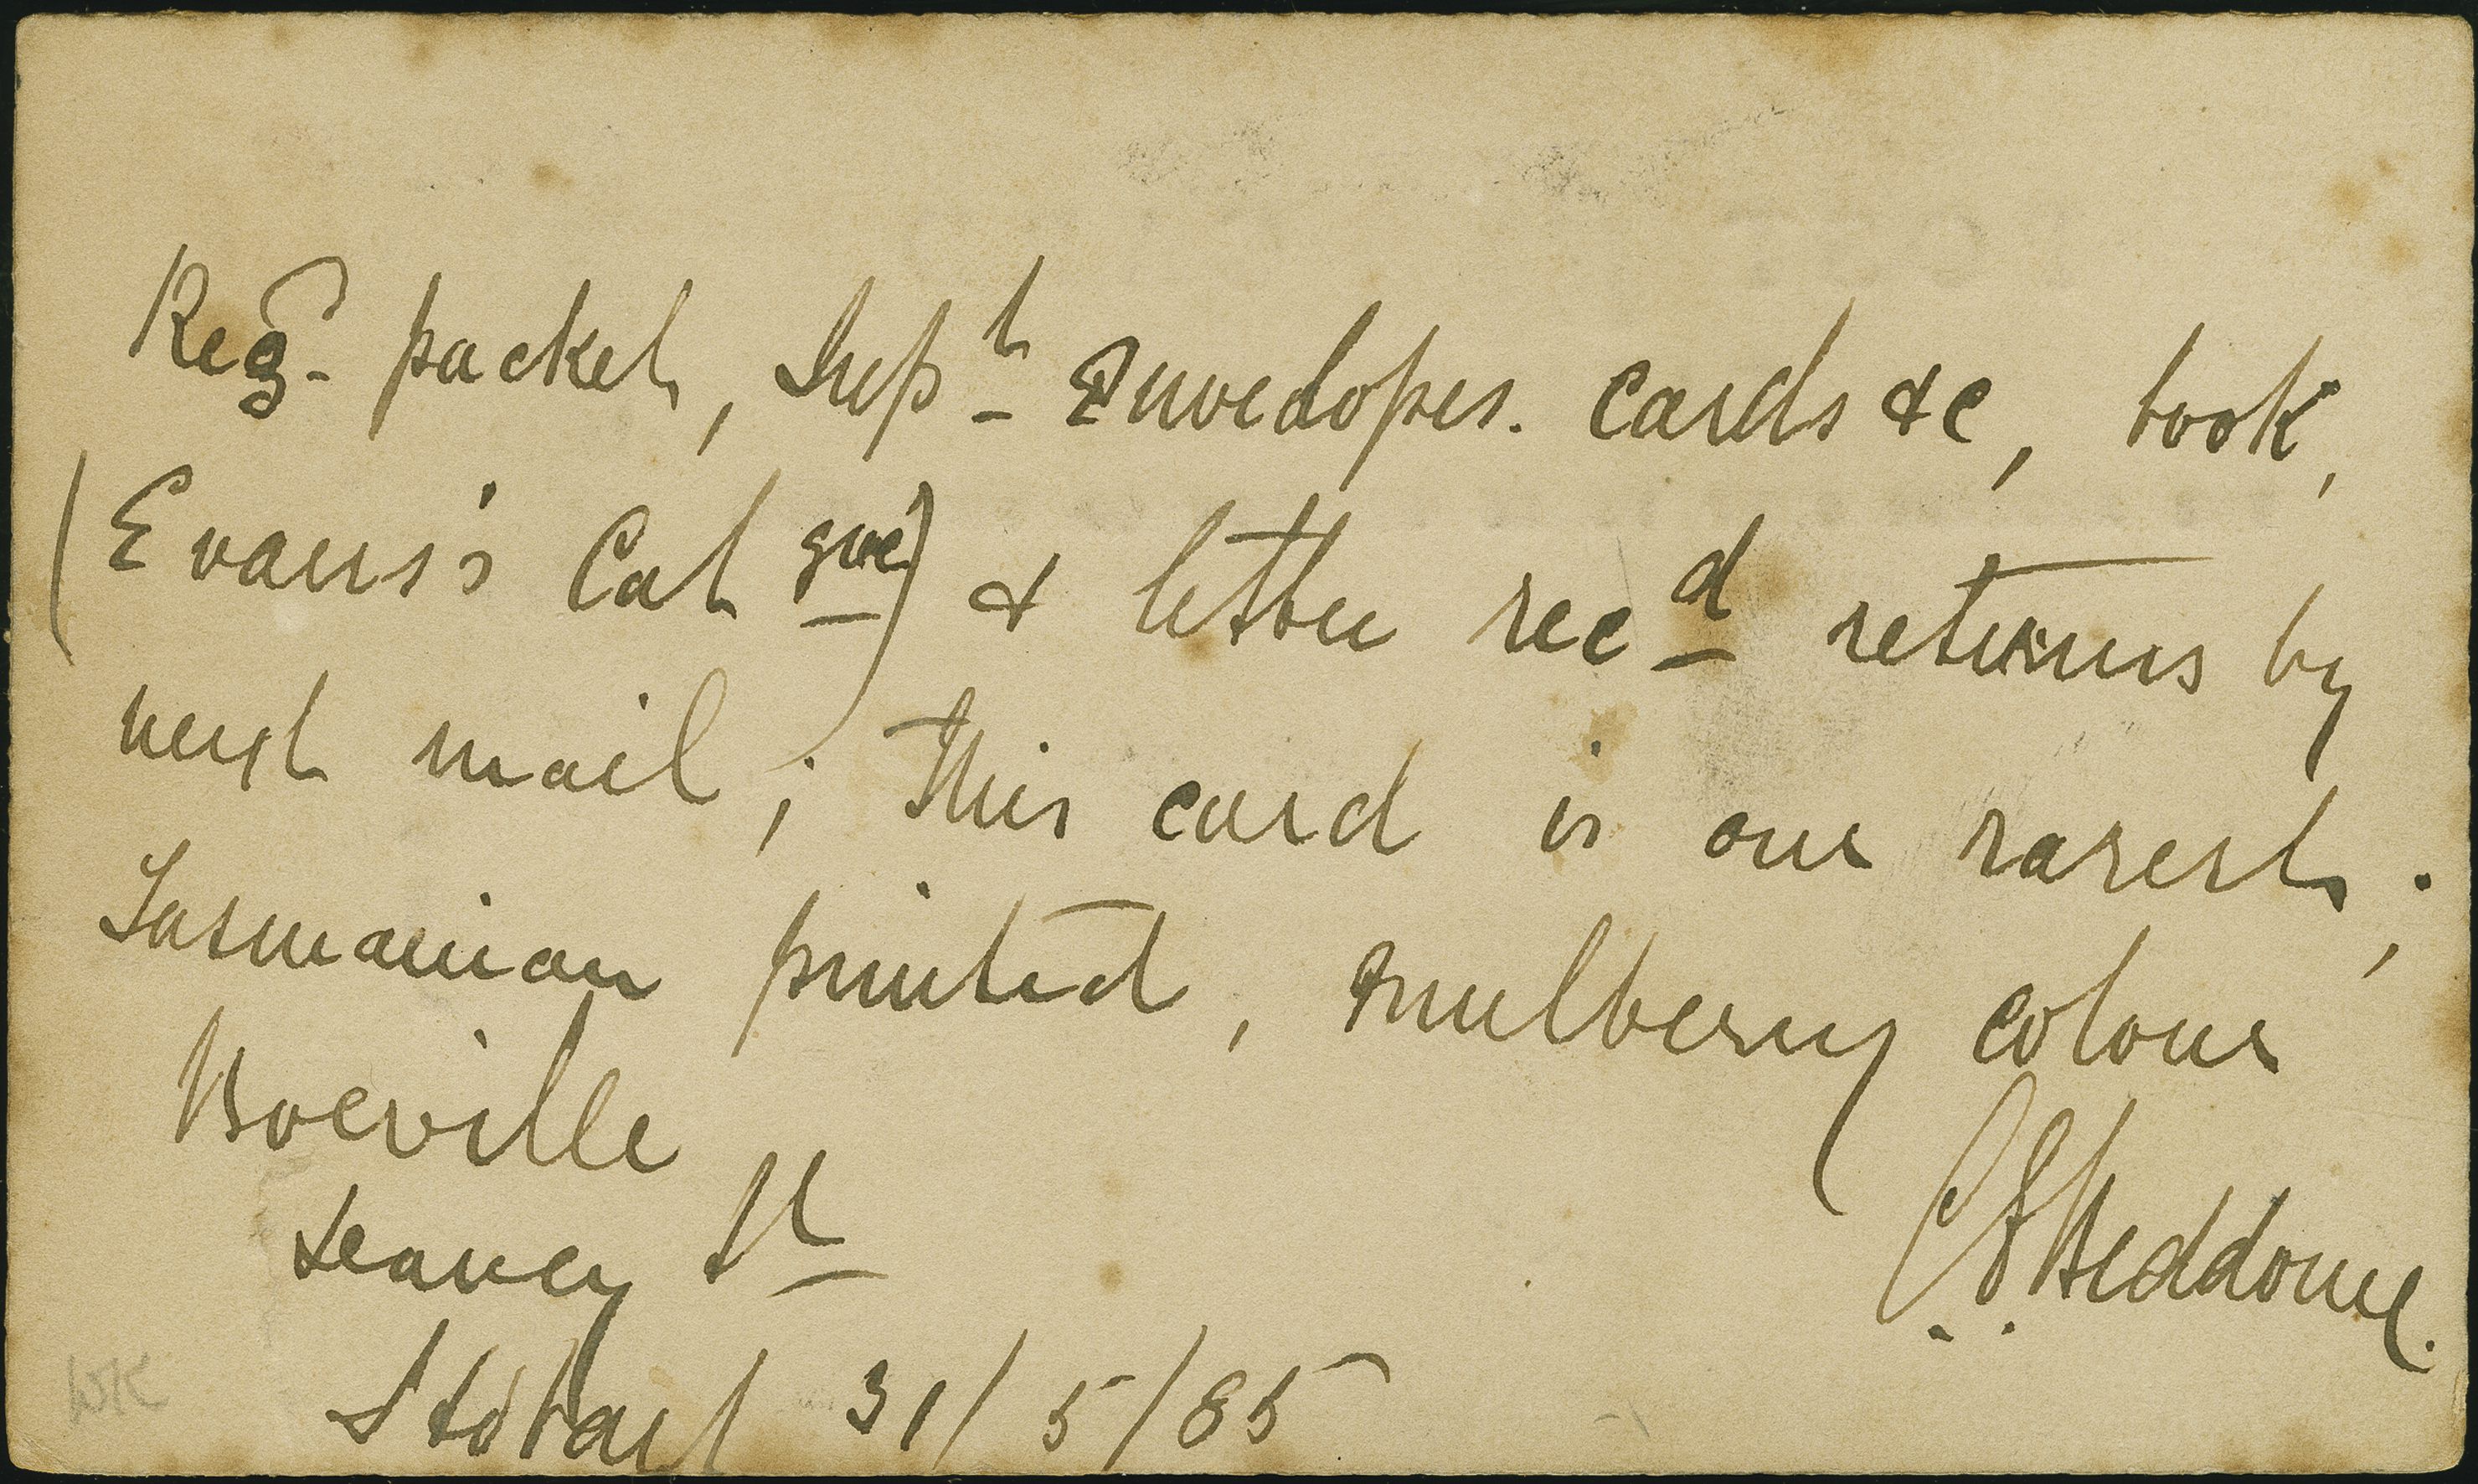 Regd packet, Supt Envelopes. Cards &c, book,
(Evans's Cat gue) & letter recd returns by
next mail; this card is our rarest;
Tasmanian printed, mulberry colour
Boeville
Seaney St
Hobart 31/5/85
Beddome.
WK